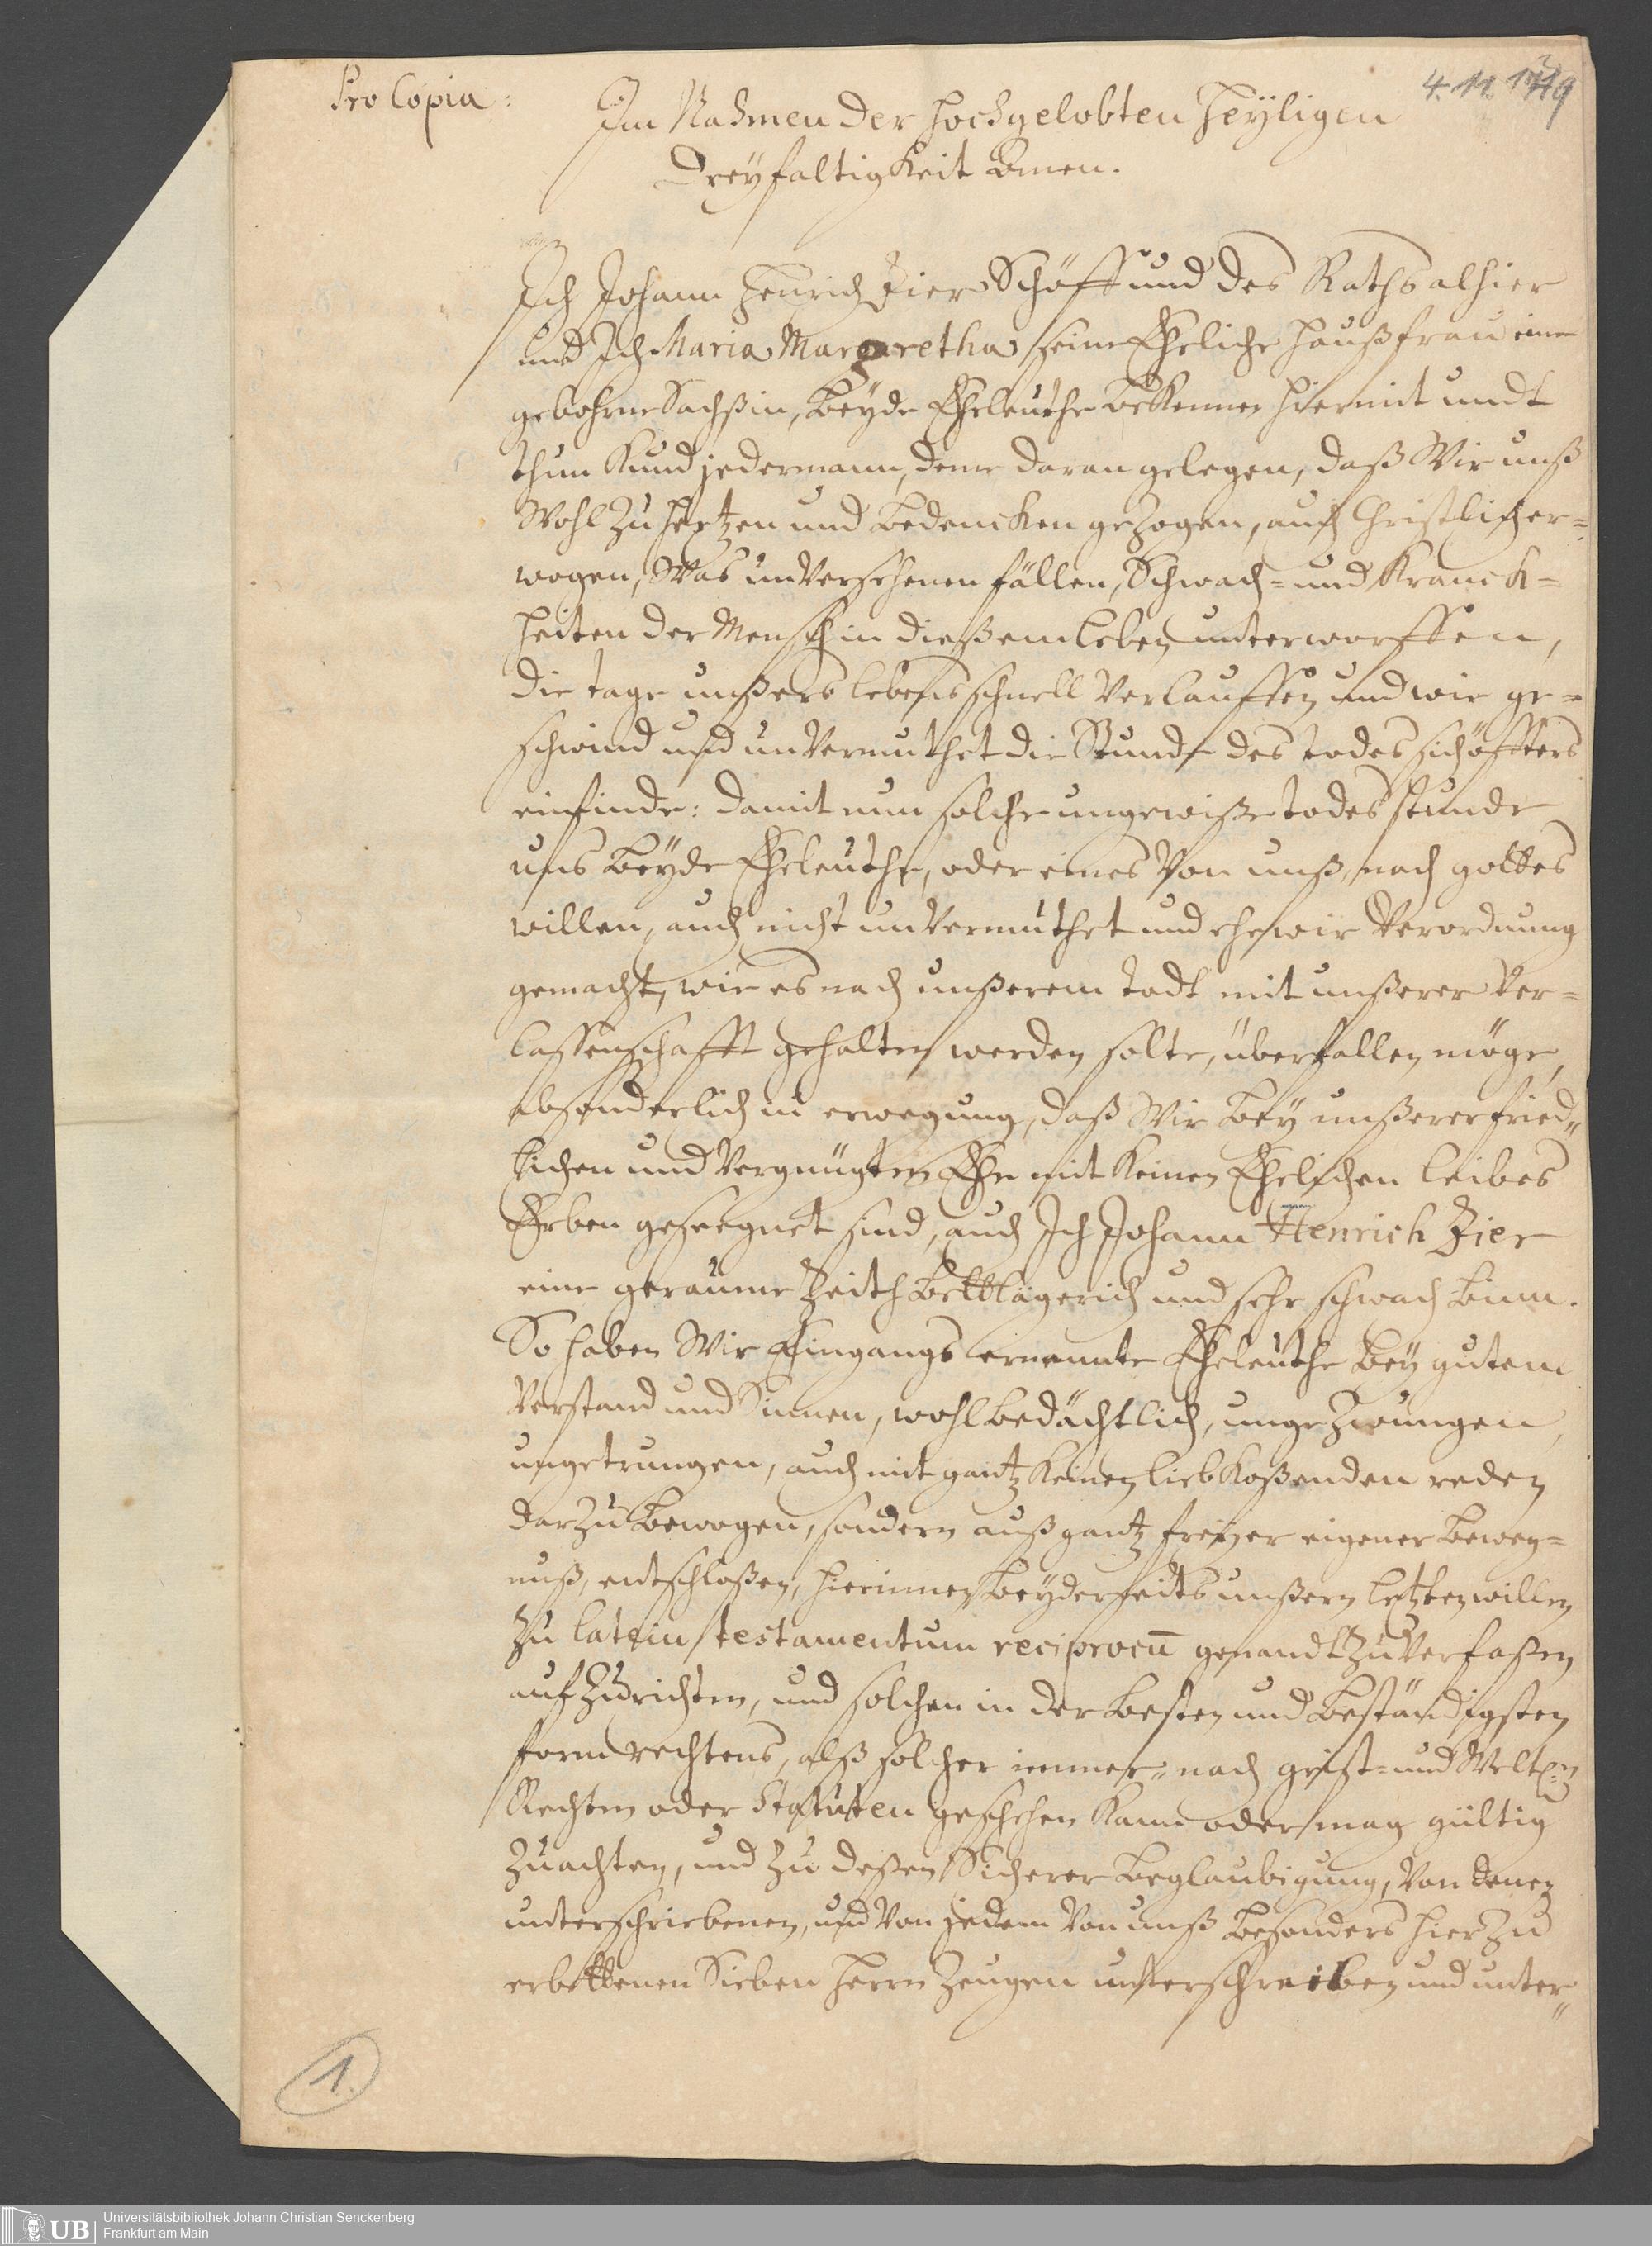 Pro Copia:
4. 11. 1719
Im Nahmen der hochgelobten Heyligen
Dreyfaltigkeit Amen.
Ich Johann Henrich Zier Schöff und des Raths alhier
und Ich Maria Margaretha seine Eheliche Haußfrau eine
gebohrne Sachßin, Beyde Eheleuthe bekennen hiermit undt
thun Kund jedermann, deme daran gelegen, daß Wir unß
Wohl zu Hertzen und Bedencken gezogen, auch Christlich er-
wogen, Was unversehenen fällen, Schwach- und Kranck-
heiten der Mensch in dießem leben unterworffen,
die tage unßers lebens schnell Verlauffen und wie ge-
schwind und unvermuthet die Stunde des todes sich öffters
einfinde: damit nun solche ungewiße todes stunde
uns Beyde Eheleuthe, oder eines Von unß, nach gottes
willen, auch nicht unvermuthet und ehe wir Verordnung
gemacht, wie es nach unßerem todt mit unßerer Ver-
lassenschafft gehalten werden solte, überfallen möge,
absonderlich in erwegung, daß Wir Bey unßerer fried-
lichen und Vergnügten Ehe mit Keinen Ehelichen leibes
Erben geseegnet sind, auch Ich Johann Henrich Zier
eine geraume Zeith Bettlägerich und sehr schwach binn.
So haben Wir Eingangs ernennte Eheleuthe Bey gutem
Verstand und Sinnen, wohlbedächtlich, ungezwungen,
ungetrungen, auch mit gantz Keinen liebkoßenden reden
darzu Bewogen, sondern auß gantz freyer eigener Beweg-
nuß, entschloßen, hierinnen Beyderseits unßern letzten willen
zu latein testamentum reciprocū genandt zu Verfaßen
aufzurichten, und solchen in der Besten und Beständigsten
form rechtens, alß solcher immer nach geist- und Weltl:n
Rechten oder Statuten geschehen Kann oder mag gültig
zu achten, und zu deßen Sicherer Beglaubigung, Von denen
unterschriebenen, und Von jedem Von unß Besonders hierzu
erbettenen Sieben Herrn Zeugen unterschreiben und unter-
1.
UB
Universitätsbibliothek Johann Christian Senckenberg
Frankfurt am Main